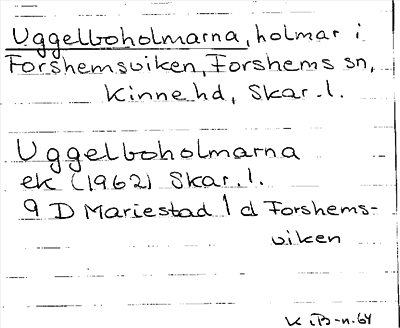 Uggelboholmarna, holmar i
Forshemsviken, Forshems sn,
Kinne hd, Skar. l.
Uggelboholmarna
ek (1962) Skar. l.
9 D Mariestad 1 d Forshems-
viken
K. B-n. 64